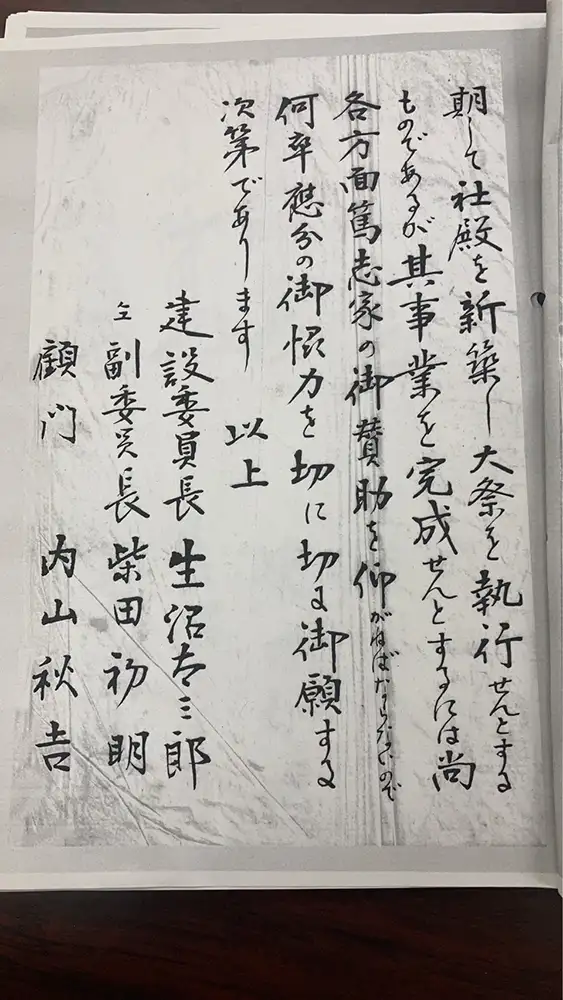 期して社殿を新築し大祭を執行せんとする
ものであるが其事業を完成せんとするには尚
各方面篤志家の御賛助を仰がねばならないので
何卒應分の御協力を切に切に御願する
次第であります
以上
建設委員長 生沼太三郎
仝副委員長 柴田初明
顧問 内山秋吉